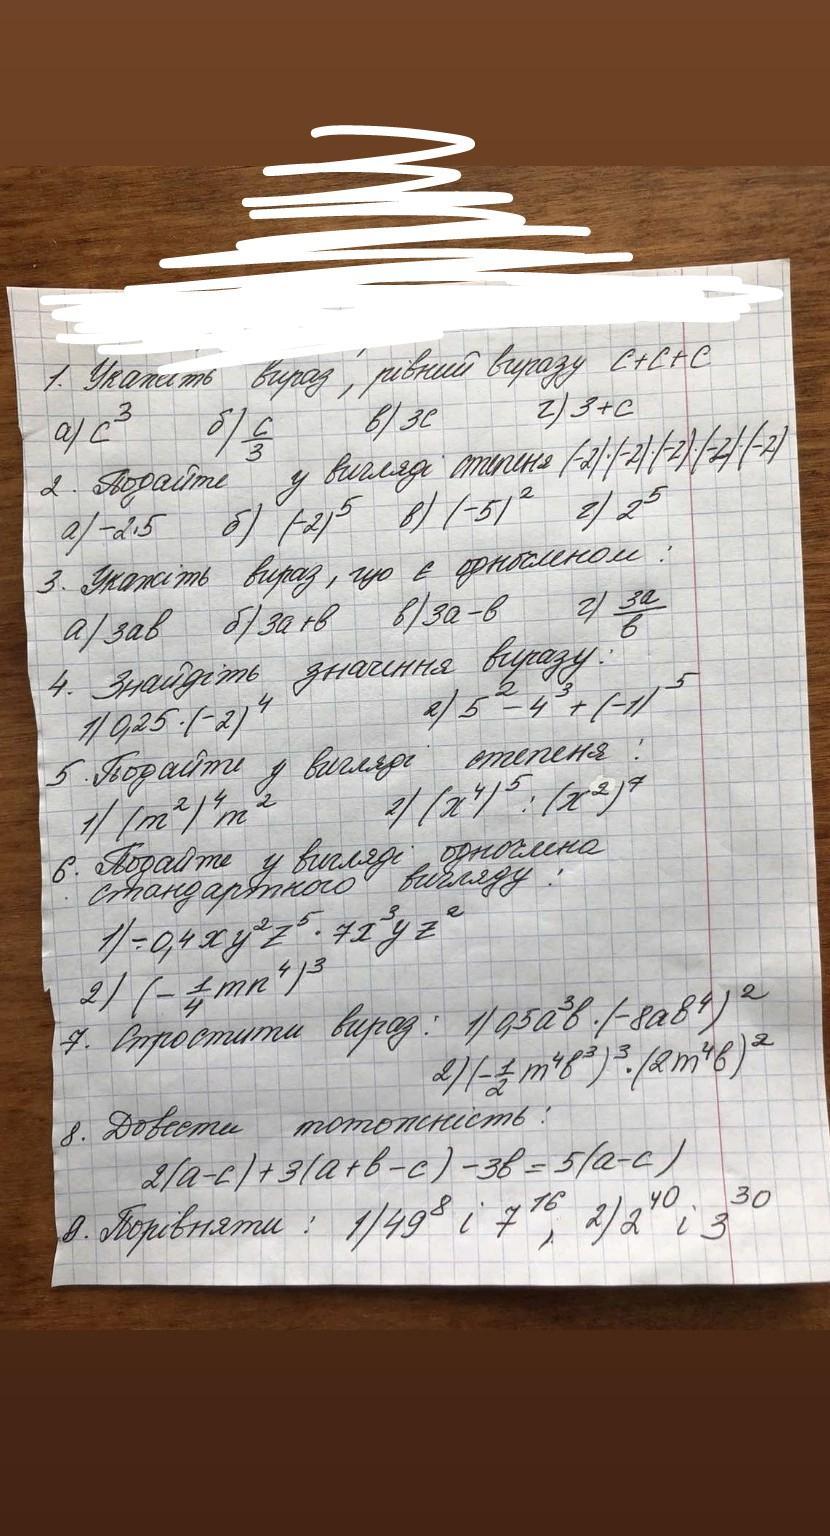 1. Укажіть вираз, рівний виразу c+c+c
а) c³ б) c/3 в) 3c г) 3+c
2. Подайте у вигляді степеня (-2)·(-2)·(-2)·(-2)·(-2)
а) -2·5 б) (-2)⁵ в) (-5)² г) 2⁵
3. Укажіть вираз, що є одночленом:
а) 3ab б) 3a+b в) 3a-b г) 3a/b
4. Знайдіть значення виразу:
1) 0,25·(-2)⁴ 2) 5²-4³+(-1)⁵
5. Подайте у вигляді степеня:
1) (m²)⁴m² 2) (x⁴)⁵:(x²)⁷
6. Подайте у вигляді одночлена
стандартного вигляду:
1) -0,4xy²z⁵·7x³yz²
2) (-1/4mn⁴)³
7. Спростити вираз: 1) 0,5a³b·(-8ab⁴)²
2) (-1/2m⁴b³)³·(2m⁴b)²
8. Довести тотожність:
2(a-c)+3(a+b-c)-3b=5(a-c)
9. Порівняти: 1) 49⁸ і 7¹⁶, 2) 2⁴⁰ і 3³⁰